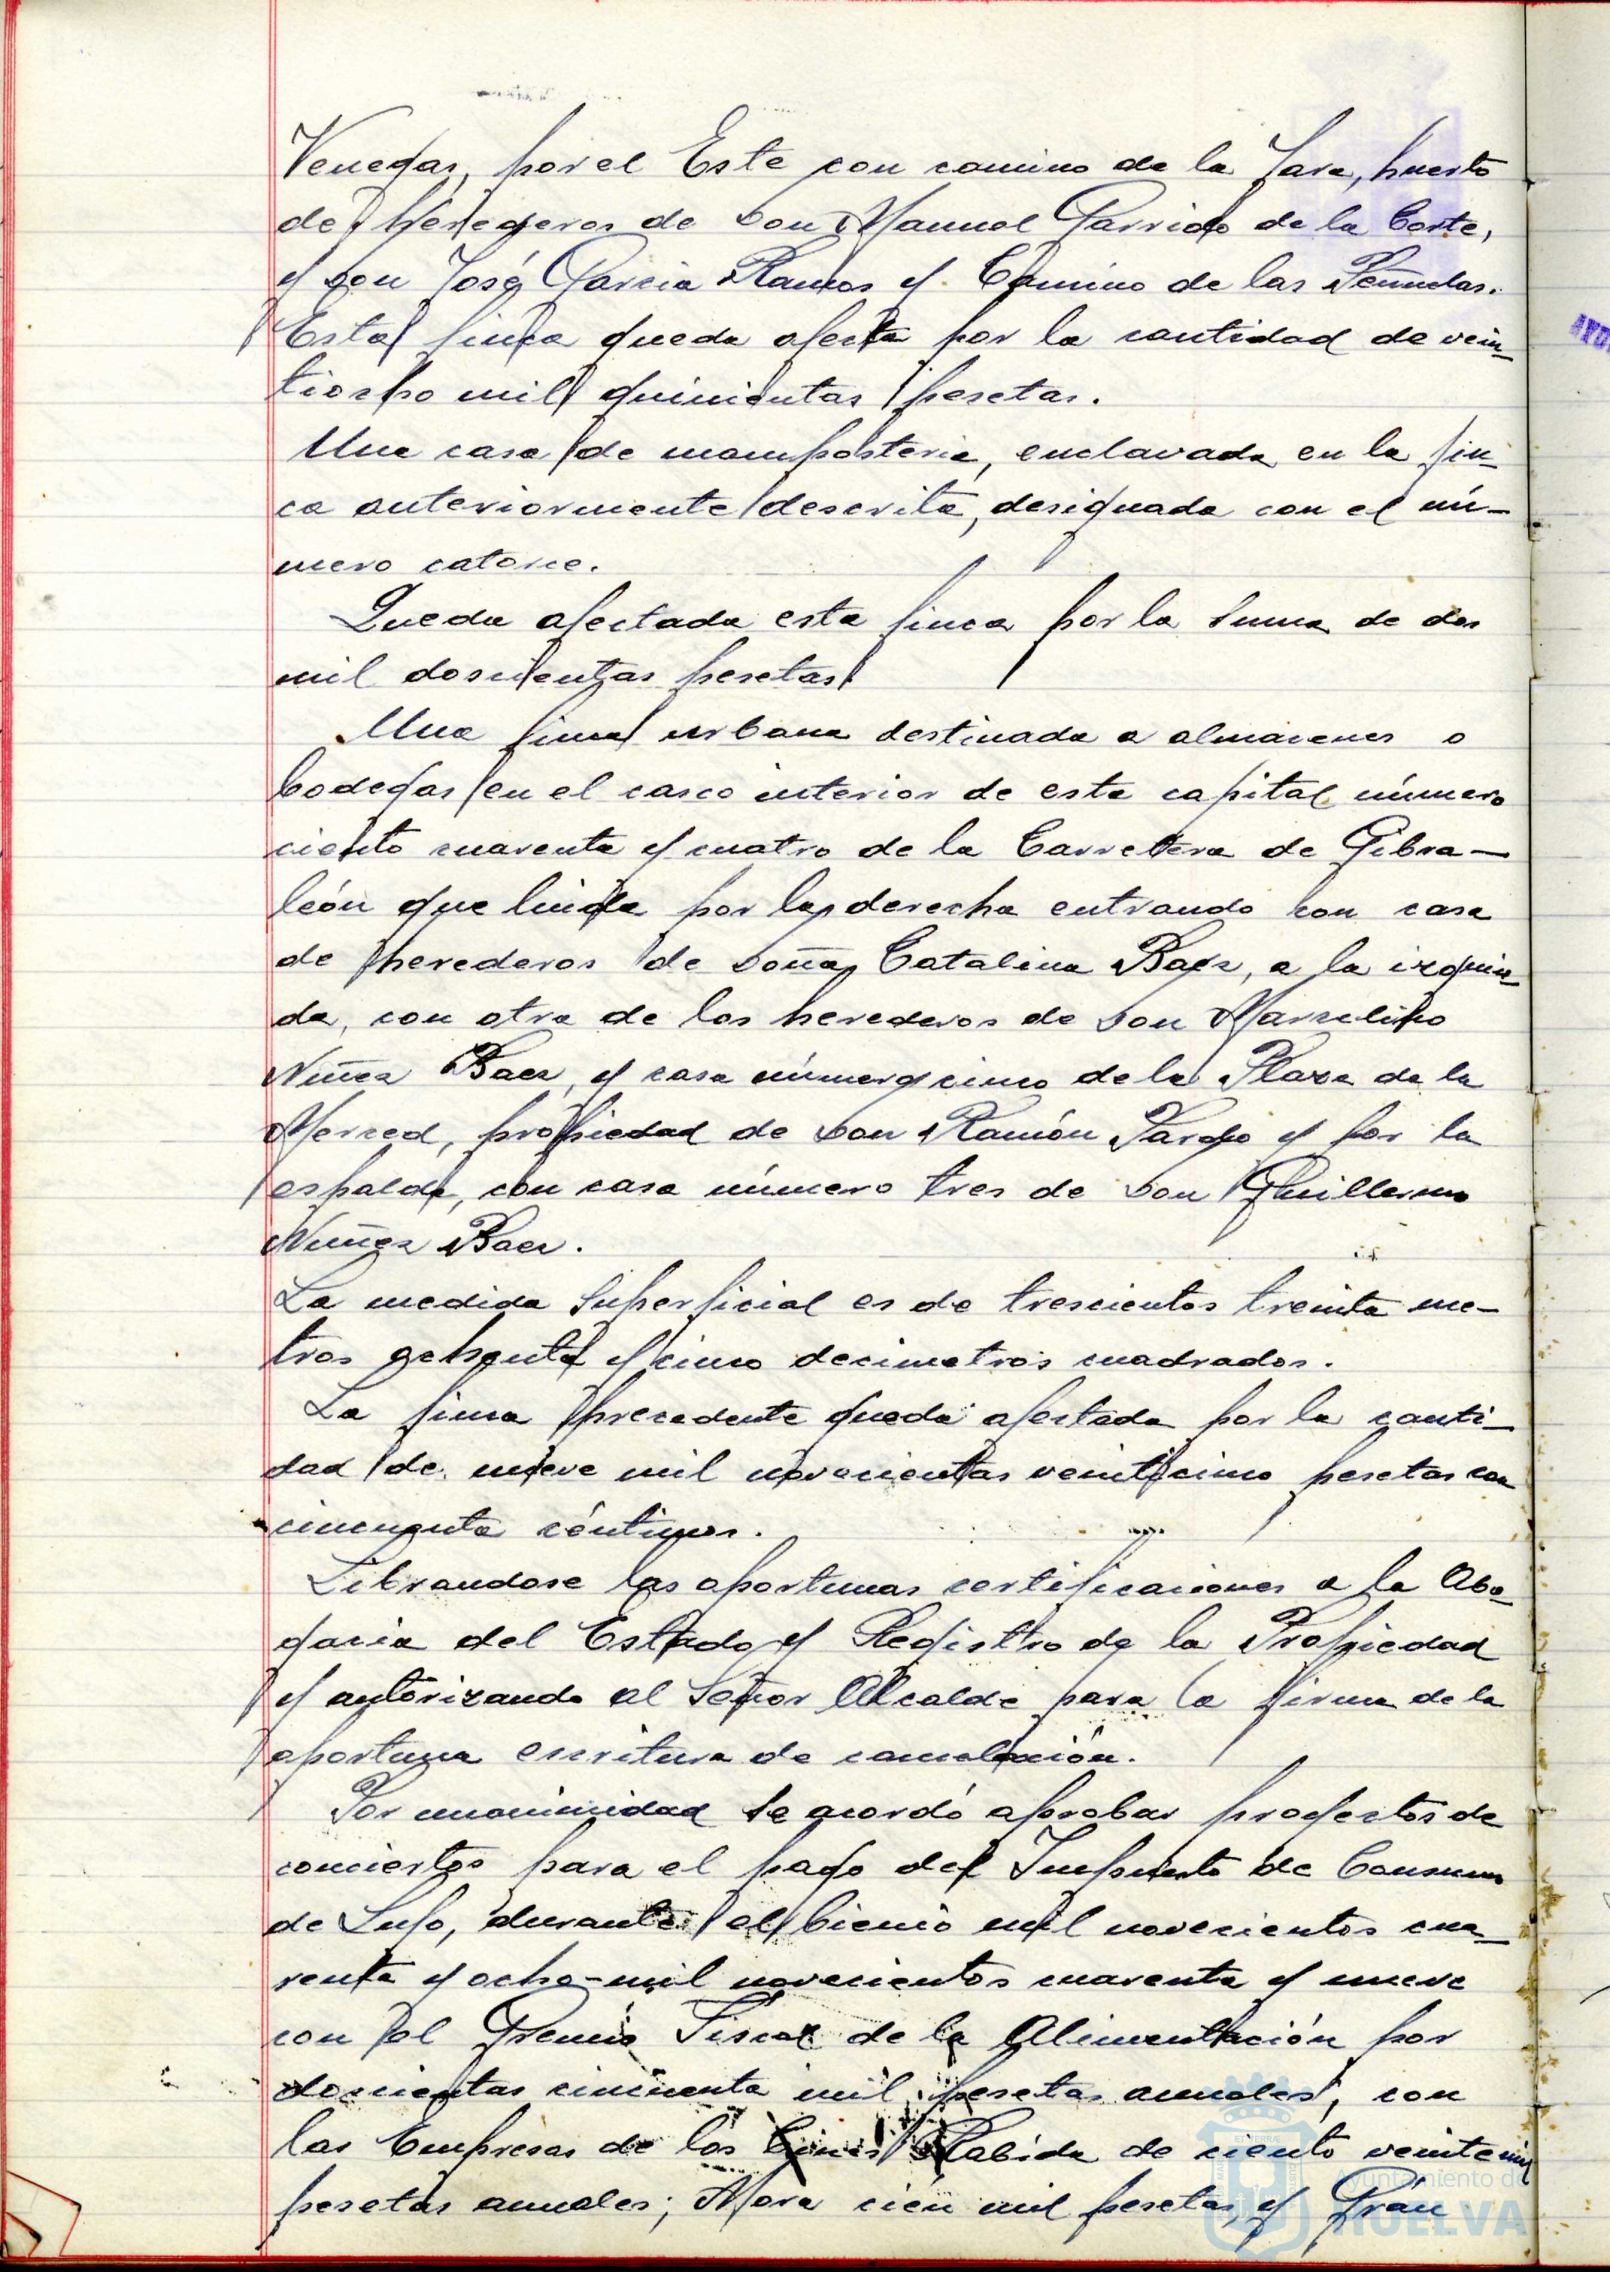 Venegas, por el Este con camino de la Jara, huerto
de herederos de Don Manuel Garrido de la Corte,
y don José Garcia Ramos y Camino de las Peñuelas.
Esta finca queda afecta por la cantidad de vein-
tiocho mil quinientas pesetas.
Una casa de mamposteria, enclavada en la fin-
ca anteriormente descrita, designada con el nú-
mero catorce.
Queda afectada esta finca por la suma de dos
mil doscientas pesetas.
Una finca urbana destinada a almacenes o
bodegas en el casco interior de esta capital número
ciento cuarenta y cuatro de la Carretera de Gibra-
león que linda por la derecha entrando con casa
de herederos de Doña Catalina Baez, a la izquier-
da, con otra de los herederos de Don Marcelino
Nuñez Baez, y casa número cinco de la Plaza de la
Merced, propiedad de Don Ramón Pardo y por la
espalda, con casa número tres de Don Guillermo
Nuñez Baez.
La medida superficial es de trescientos treinta me-
tros ochenta y cinco decimetros cuadrados.
La finca precedente queda afectada por la canti-
dad de nueve mil novecientas veinticinco pesetas con
cincuenta céntimos.
Librandose las oportunas certificaciones a la Abo-
gacia del Estado y Registro de la Propiedad
y autorizando al Señor Alcalde para la firma de la
oportuna escritura de cancelación.
Por unanimidad se acordó aprobar proyectos de
conciertos para el pago del Impuesto de Consumo
de Lujo, durante el bienio mil novecientos cua-
renta y ocho-mil novecientos cuarenta y nueve
con el Gremio Fiscal de la Alimentación por
doscientas cincuenta mil pesetas anuales, con
las Empresas de los Cines Rabida de ciento veinte mil
pesetas anuales; Mora cién mil pesetas, y Grán
Ayuntamiento de
HUELVA